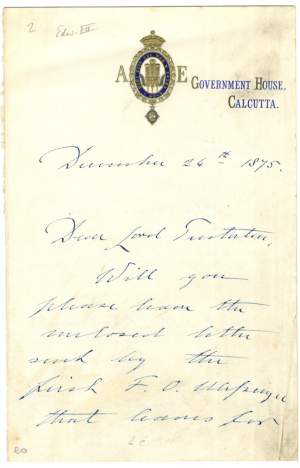 2
Edw. VII
A E
GOVERNMENT HOUSE,
CALCUTTA.
December 26th 1875.
Dear Lord
Will you
please have the
enclosed letter
sent by the
first F. O. Messenger
that leaves for